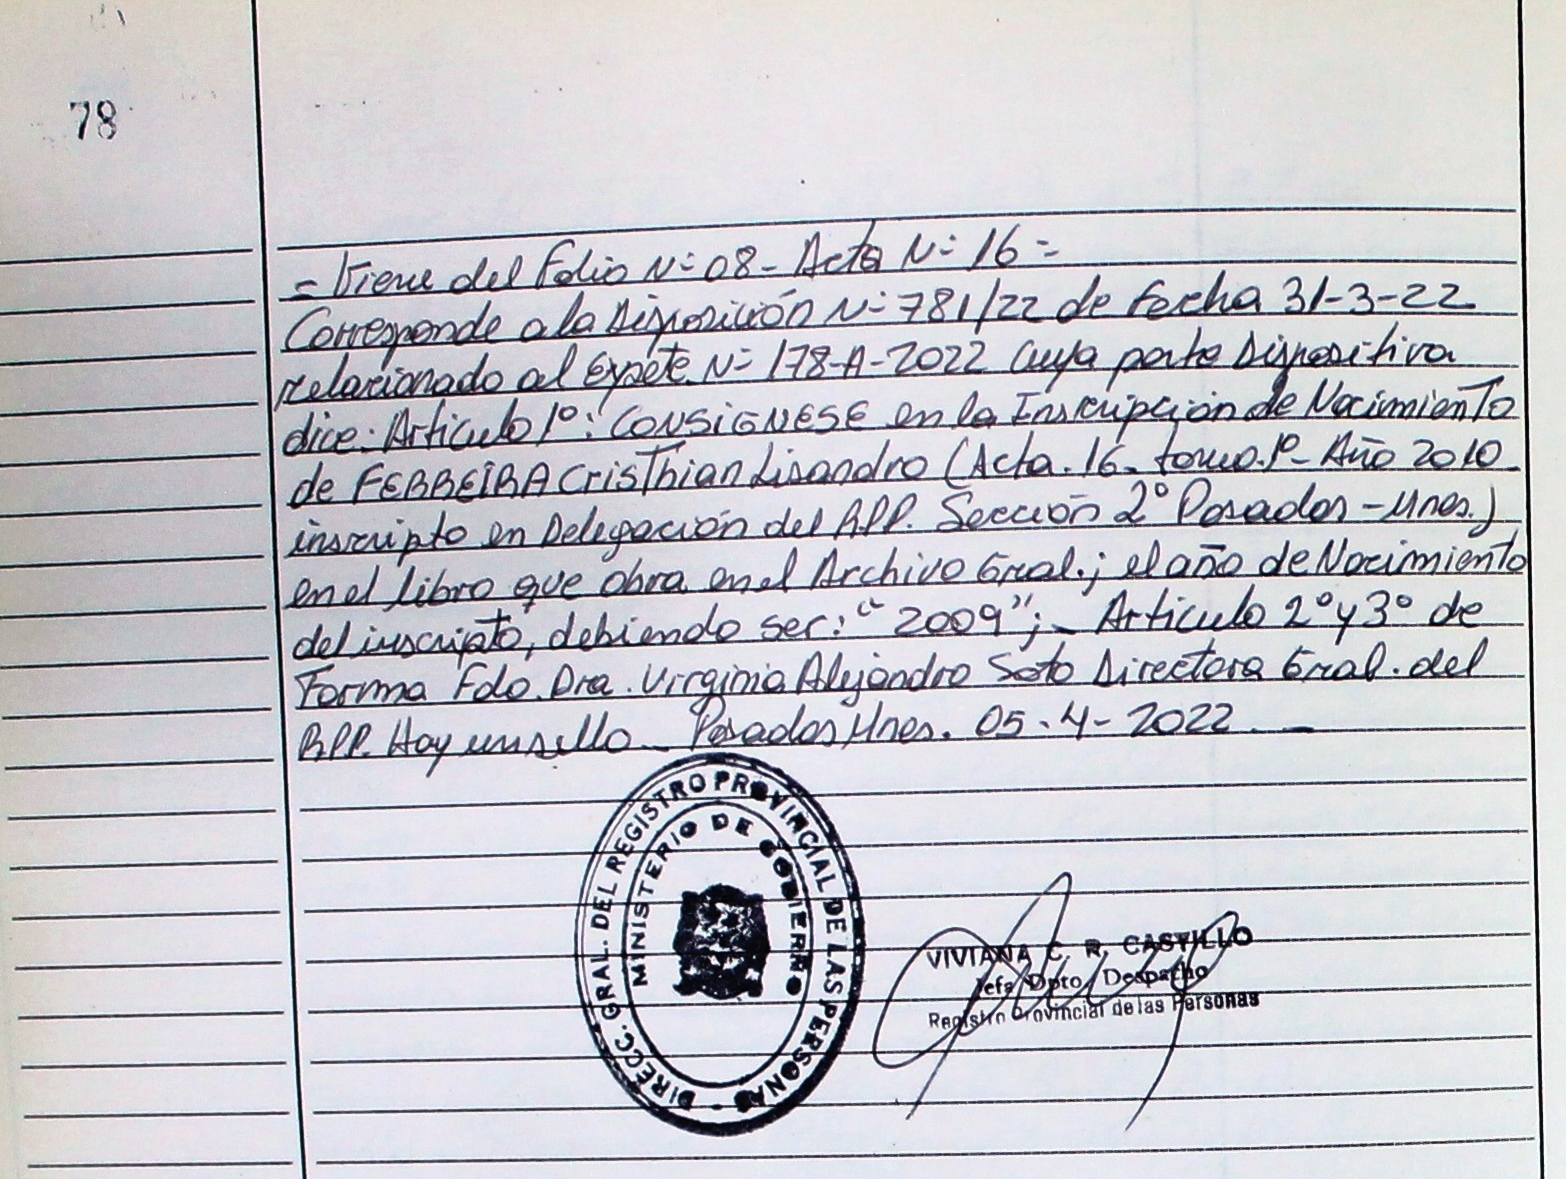 78
= Viene del Folio N= 08 - Acta N= 16 =
Corresponde a la Disposición N= 781/22 de fecha 31-3-22
relacionado al Expte. N= 178-A-2022 cuya parte Dispositiva
dice: Articulo 1º: CONSIGNESE en la Inscripción de Nacimiento
de FERREIRA CrisThian Lisandro (Acta. 16. tomo. 1º - Año 2010
inscripto en Delegación del RPP. Sección 2º Posadas - Mnes.)
en el libro que obra en el Archivo Gral.; el año de Nacimiento
del inscripto, debiendo ser: "2009"; - Articulo 2º y 3º de
Forma Fdo. Dra. Virginia Alejandra Soto Directora Gral. del
RPP. Hay un sello - Posadas Mnes. 05-4-2022 -
DIRECC. GRAL. DEL REGISTRO PROVINCIAL DE LAS PERSONAS -
MINISTERIO DE GOBIERNO
VIVIANA C. R. CASTILLO
Jefa Dpto. Despacho
Registro Provincial de las Personas